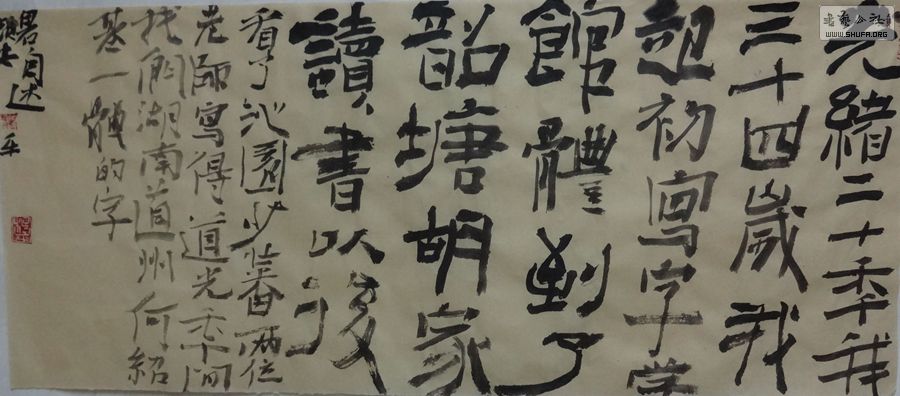 光緒二十秊我
三十四歲我
起初寫字學
館體到了
韶塘胡家
讀書以後
看了沁園少蕃兩位
老師寫得道光秊间
我們湖南道州何紹
基一體的字
自述
書藝公社
WWW.SHUFA.ORG